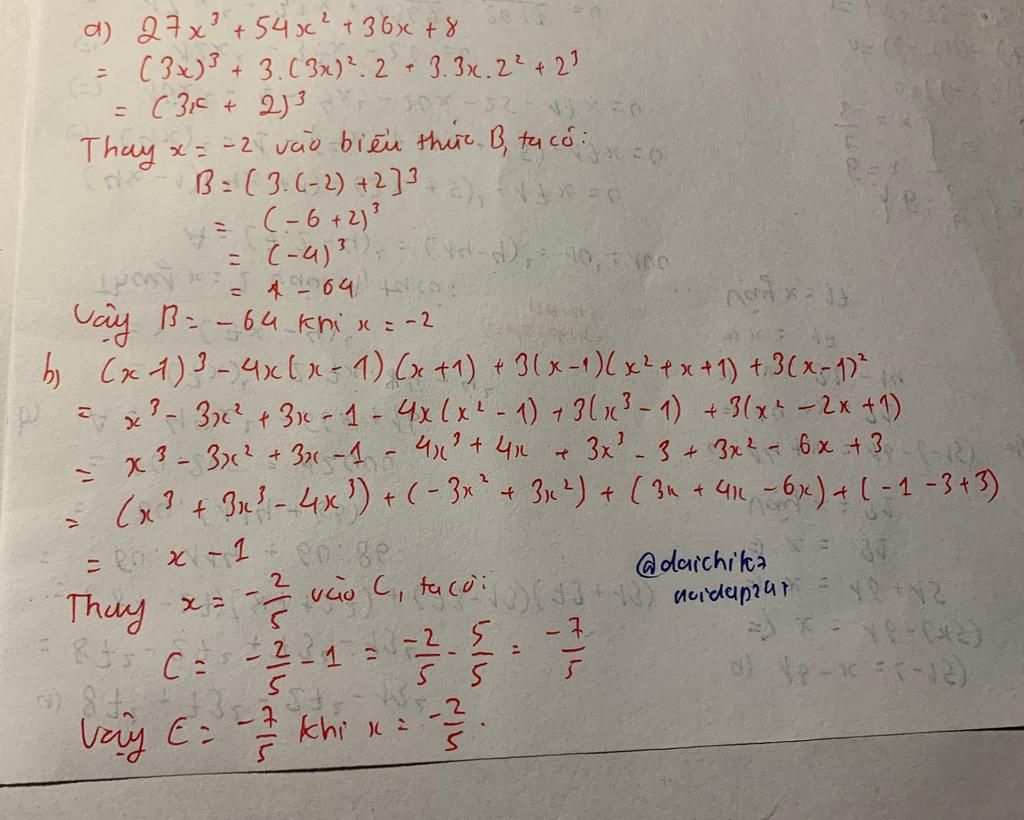 a) 27x³ + 54x² + 36x + 8
= (3x)³ + 3.(3x)².2 + 3.3x.2² + 2³
= (3x + 2)³
Thay x = -2 vào biểu thức B, ta có:
B = [3.(-2) + 2]³
= (-6 + 2)³
= (-4)³
= -64
Vậy B = -64 khi x = -2
b) (x-1)³ - 4x(x-1)(x+1) + 3(x-1)(x²+x+1) + 3(x-1)²
= x³ - 3x² + 3x - 1 - 4x(x² - 1) + 3(x³ - 1) + 3(x² - 2x + 1)
= x³ - 3x² + 3x - 1 - 4x³ + 4x + 3x³ - 3 + 3x² - 6x + 3
= (x³ + 3x³ - 4x³) + (-3x² + 3x²) + (3x + 4x - 6x) + (-1 - 3 + 3)
= x - 1
@daichik2
Thay x = -2/5 vào C, ta có:
C = -2/5 - 1 = -2/5 - 5/5 = -7/5
Vậy C = -7/5 khi x = -2/5.